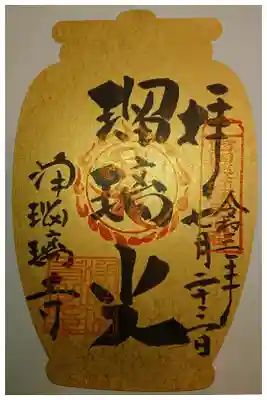 拝
令和三年
七月二十二日
瑠璃光
浄瑠璃寺